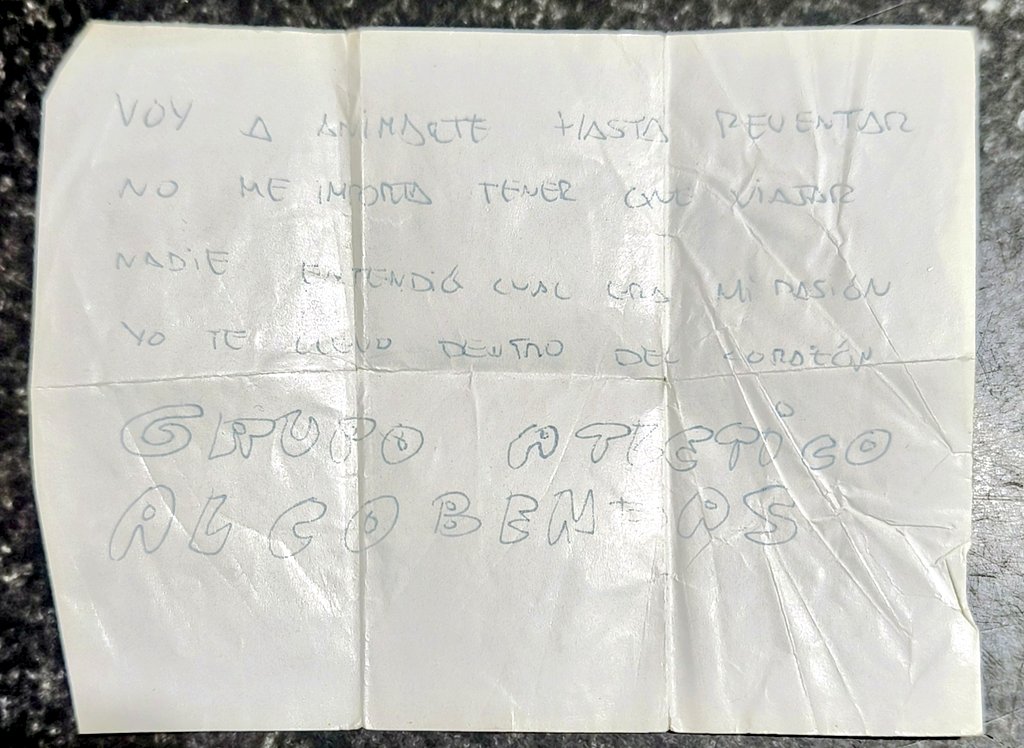 VOY A ANIMARTE HASTA REVENTAR
NO ME IMPORTA TENER QUE VIAJAR
NADIE ENTENDIÓ CUAL ERA MI PASIÓN
YO TE LLEVO DENTRO DEL CORAZÓN
GRUPO ATLETICO
ALCOBENDAS